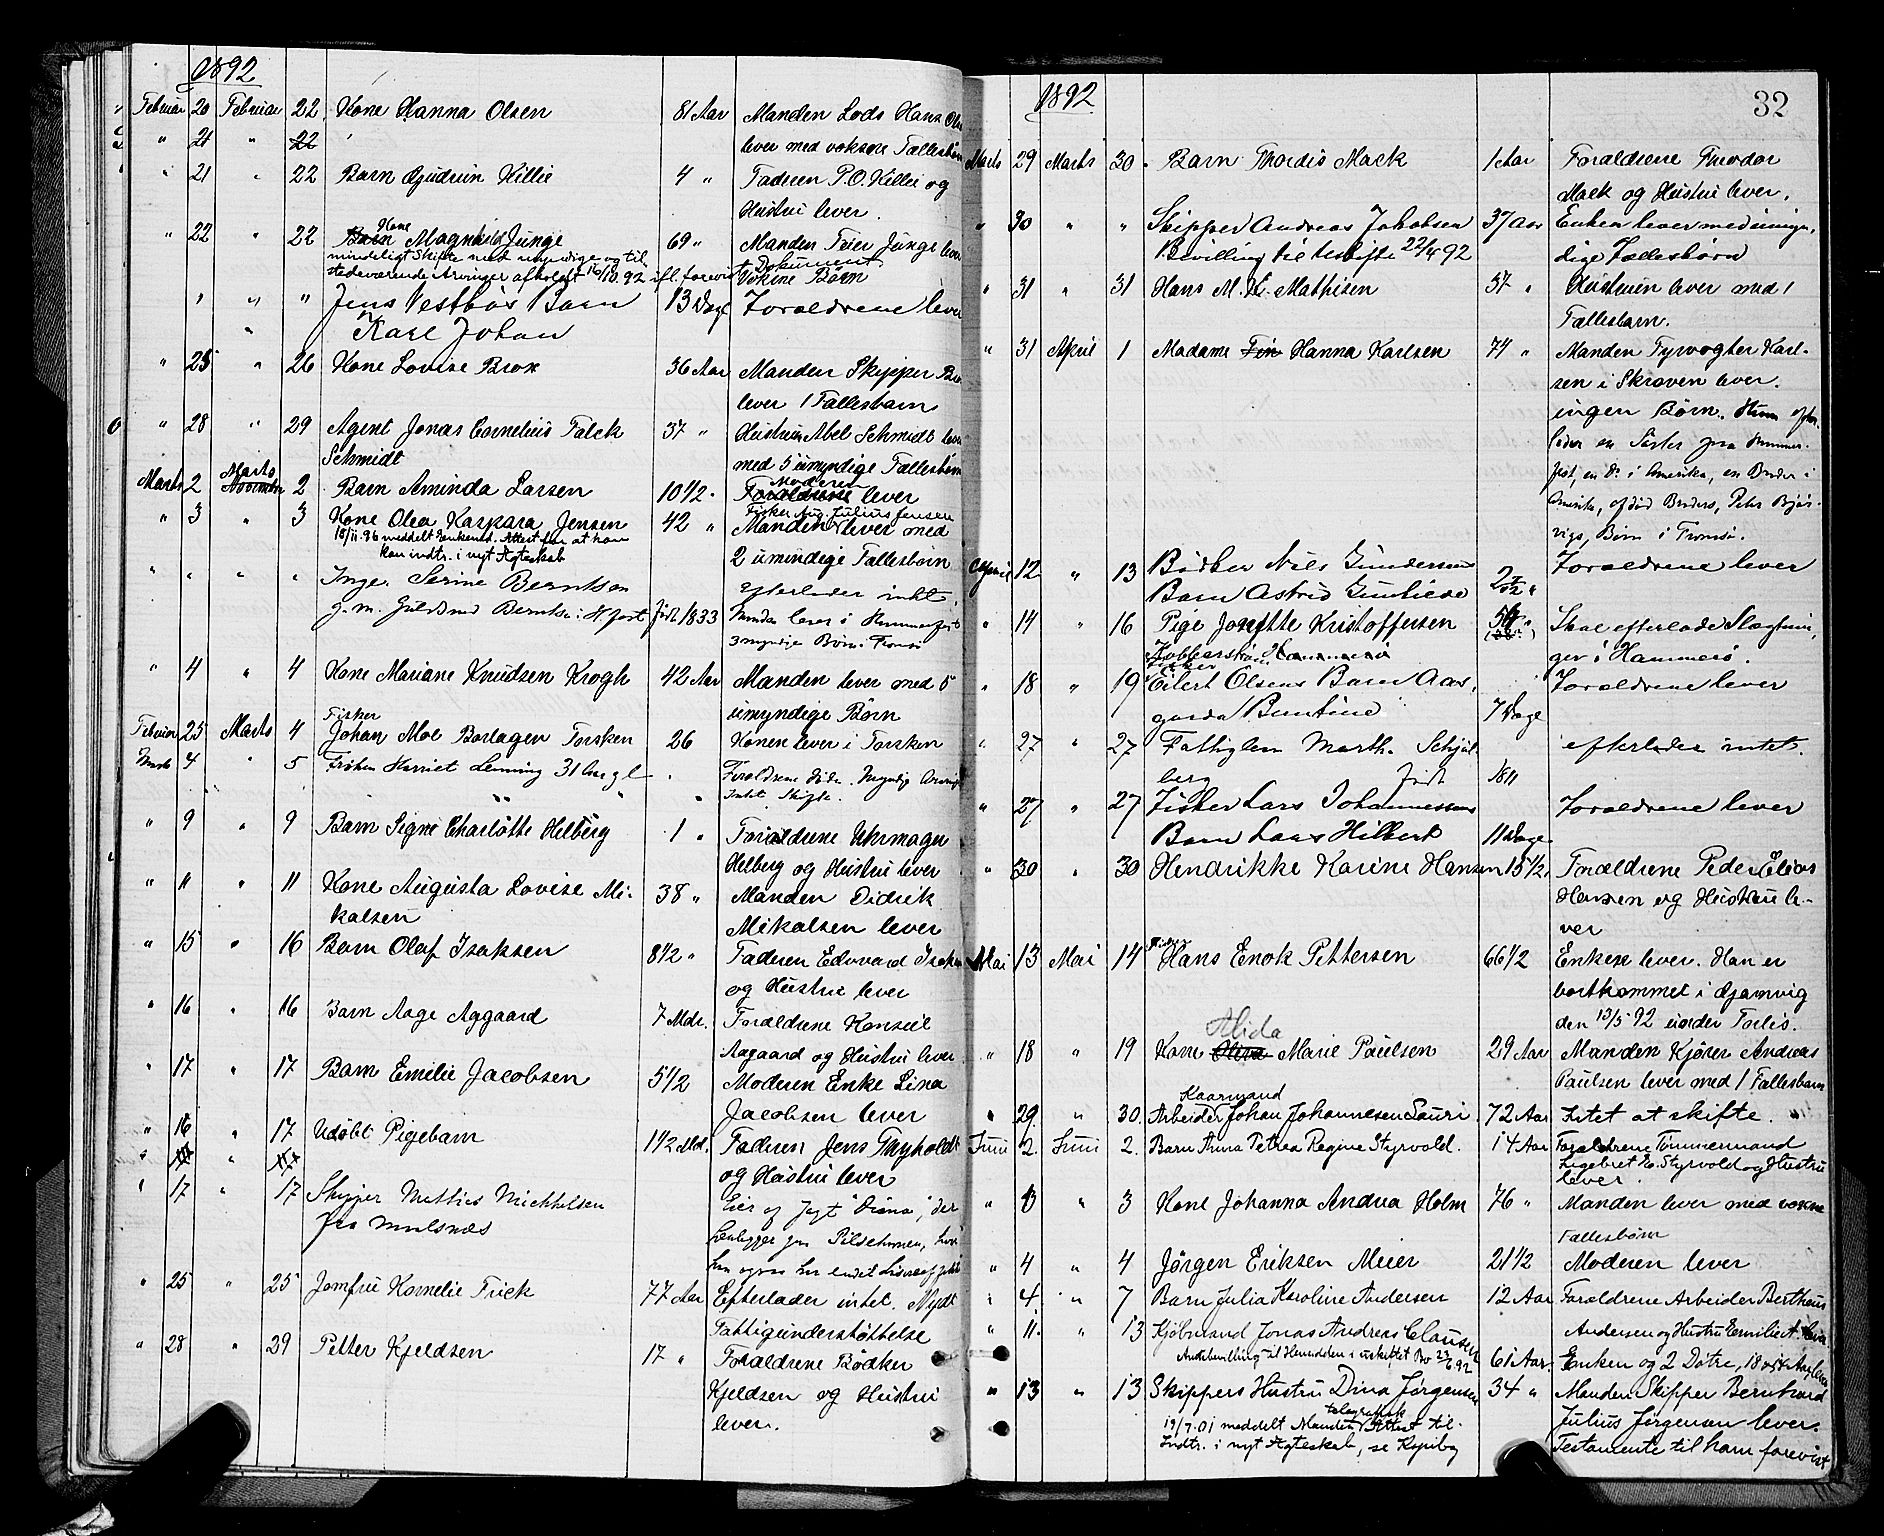 1892
Februar 20 Februar 22 Kone Hanna Olsen 81 Aar Manden Lods Hans
" 21 " 22 lever med voksne Fællesbørn
" 21 " 22 Barn Gudrun Killie 4 " Faderen P.O. Killie og
Hustru lever.
Kone
" 22 " 22 Barn Magnhild Junge 69 " Manden Junge lever
mindeligt Skifte med umyndige og til
stedeværende Arvinger afholdt 16/10.92 ifl. forevist Dokument.
Voksne Børn
" " " Jens Vestbøs Barn 13 Dage Forældrene lever
" Karl Johan
" 25 " 26 Kone Lovise Brox 36 Aar Manden Skipper
lever 1 Fællesbarn
" 28 " 29 Agent Jonas Cornelius Falck 37 " Hustruen Abel Schmidt lever
Schmidt med 5 umyndige Fællesbørn
Marts
Marts 2 November 2 Barn Aminda Larsen 10 1/2 Forældrene lever
Moderen
Fisker Aug. Julius Jensen
" 3 " 3 Kone Olea Kaspara Jensen 42 " Manden lever med
18/11.96 meddelt Enkemd. Attest for at han
kan indtr. i nyt Ægteskab
2 umindige Fællesbørn
" " " " Inger Serine Berntsen efterlader intet.
g. m. Guldsmed Berntsen i H.fest født 1833 Manden lever i Hammerfest
3 myndige Børn. Tromsø
" 4 " 4 Kone Mariane Knudsen Krogh 42 Aar Manden lever med 5
umyndige Børn
Fisker
Februar 25 Marts 4 Johan Moe Torsken 26 Konen lever i Torsken
Marts 4 " 5 Frøken Harriet Lenning 31 Aar gl Forældrene døde. Myndig
Intet Skifte.
" 9 " 9 Barn Signe Charlotte Helberg 1 " Forældrene Uhrmager
Helberg og Hustru lever
" 11 " 11 Kone Augusta Lovise Mi- 38 " Manden Didrik
kalsen Mikalsen lever
" 15 " 16 Barn Olaf Isaksen 8 1/2 " Faderen Edvard
og Hustru lever
" 16 " 16 Barn Aage Aagaard 7 Mdr. Forældrene Konsul
Aagaard og Hustru lever
" 17 " 17 Barn Emilie Jacobsen 5 1/2 Moderen Enke Lina
Jacobsen lever
" 16 " 17 Udøbt Pigebarn 1 1/2 Md. Faderen Jens
" 17 " 17 og Hustru lever
" 17 " 17 Skipper Mathies Mickkelsen Eier af Jagt "Diana", der
fra
" 25 " 25 Jomfru Kornelie Frick 77 Aar Efterlader intet. Nydt
Fattigunderstøttelse
" 28 " 29 Petter Kjeldsen 17 " Forældrene Bødker
Kjeldsen og Hustru
lever.
1892
32
Marts 29 Marts 30 Barn Thordis Mack 1 Aar Forældrene Theodor
Mack og Hustru lever.
" 30 " " Skipper Andreas Johansen 37 Aar Enken lever med
Bevilling til Uskifte 22/4 92 dige Fællesbørn
" 31 " 31 Hans M. Mathisen 37 " Hustruen lever med 1
Fællesbarn.
" 31 April 1 Madame Hanna Karlsen 74 " Manden Fyrvogter Karl-
sen i Skroven lever.
ingen Børn. Hun efter-
lader en Søster fra Hammer-
fest, en Do. i Amerika, en Broder i
Amerika, afdød Broders, Peter Bjør-
vigs, Børn i Tromsø.
April 12 " 13 Bødker Nils Gundersens Forældrene lever
Barn Astrid 2
" 14 " 16 Pige Josefitte Kristoffersen 54 Skal efterlade Slægtnin-
ger i Hammerø.
Fisker
" 18 " 19 Eilert Olsens Barn Aas- Forældrene lever
7 Dage
" 27 " 27 Fattiglem Marth. Schjøl- efterlader intet.
berg født 1811
" 27 " 27 Fisker Lars Johannessens Forældrene lever
Barn Lars Hilbert 11 Dage
" 30 " 30 Hendrikke Karine Hansen 15 1/2 Forældrene Peder Elias
Hansen og Hustru le-
ver
Mai 13 Mai 14 Hans Enok Pettersen 66 1/2 Enken lever. Han er
bortkommet i Gjæsvig
den 13/5 92 under
Alida
" 18 " 19 Kone Marie Paulsen 29 Aar Manden Kjører Andreas
Paulsen lever med 1 Fællesbarn
Kaarmand
" 29. " 30. Arbeider Johan Johannesen Lauri 72 Aar Intet at skifte.
Juni 2. Juni 2. Barn Anna Petrea Regine Styrvold. 14 Aar Forældrene Tømmermand
Styrvold og Hustru
lever.
" 3 " 3 Kone Johanna Andrea Holm 76 " Manden lever med voxne
Fællesbørn
" 4 " 4 Jørgen Eriksen Meier 21 1/2 Moderen lever
" 4. " 7 Barn Julia Karoline Andersen 12 Aar Forældrene Arbeider Bertheus
Andersen og Hustru
" 11. " 13 Kjøbmand Jonas Andreas Clausen
til Henidden i uskiftet Bo 23/6 92 61 Aar. Enken og 2 Døtre, 18
" 13 " 13 Skippers Hustru Dina Jørgensen 34 " Manden Skipper Bernhard
telegrafisk
19/7.01 meddelt Manden Attest til Julius Jørgensen lever.
Indtr. i nyt Ægteskab, se Kopibog Testamente til ham forevist